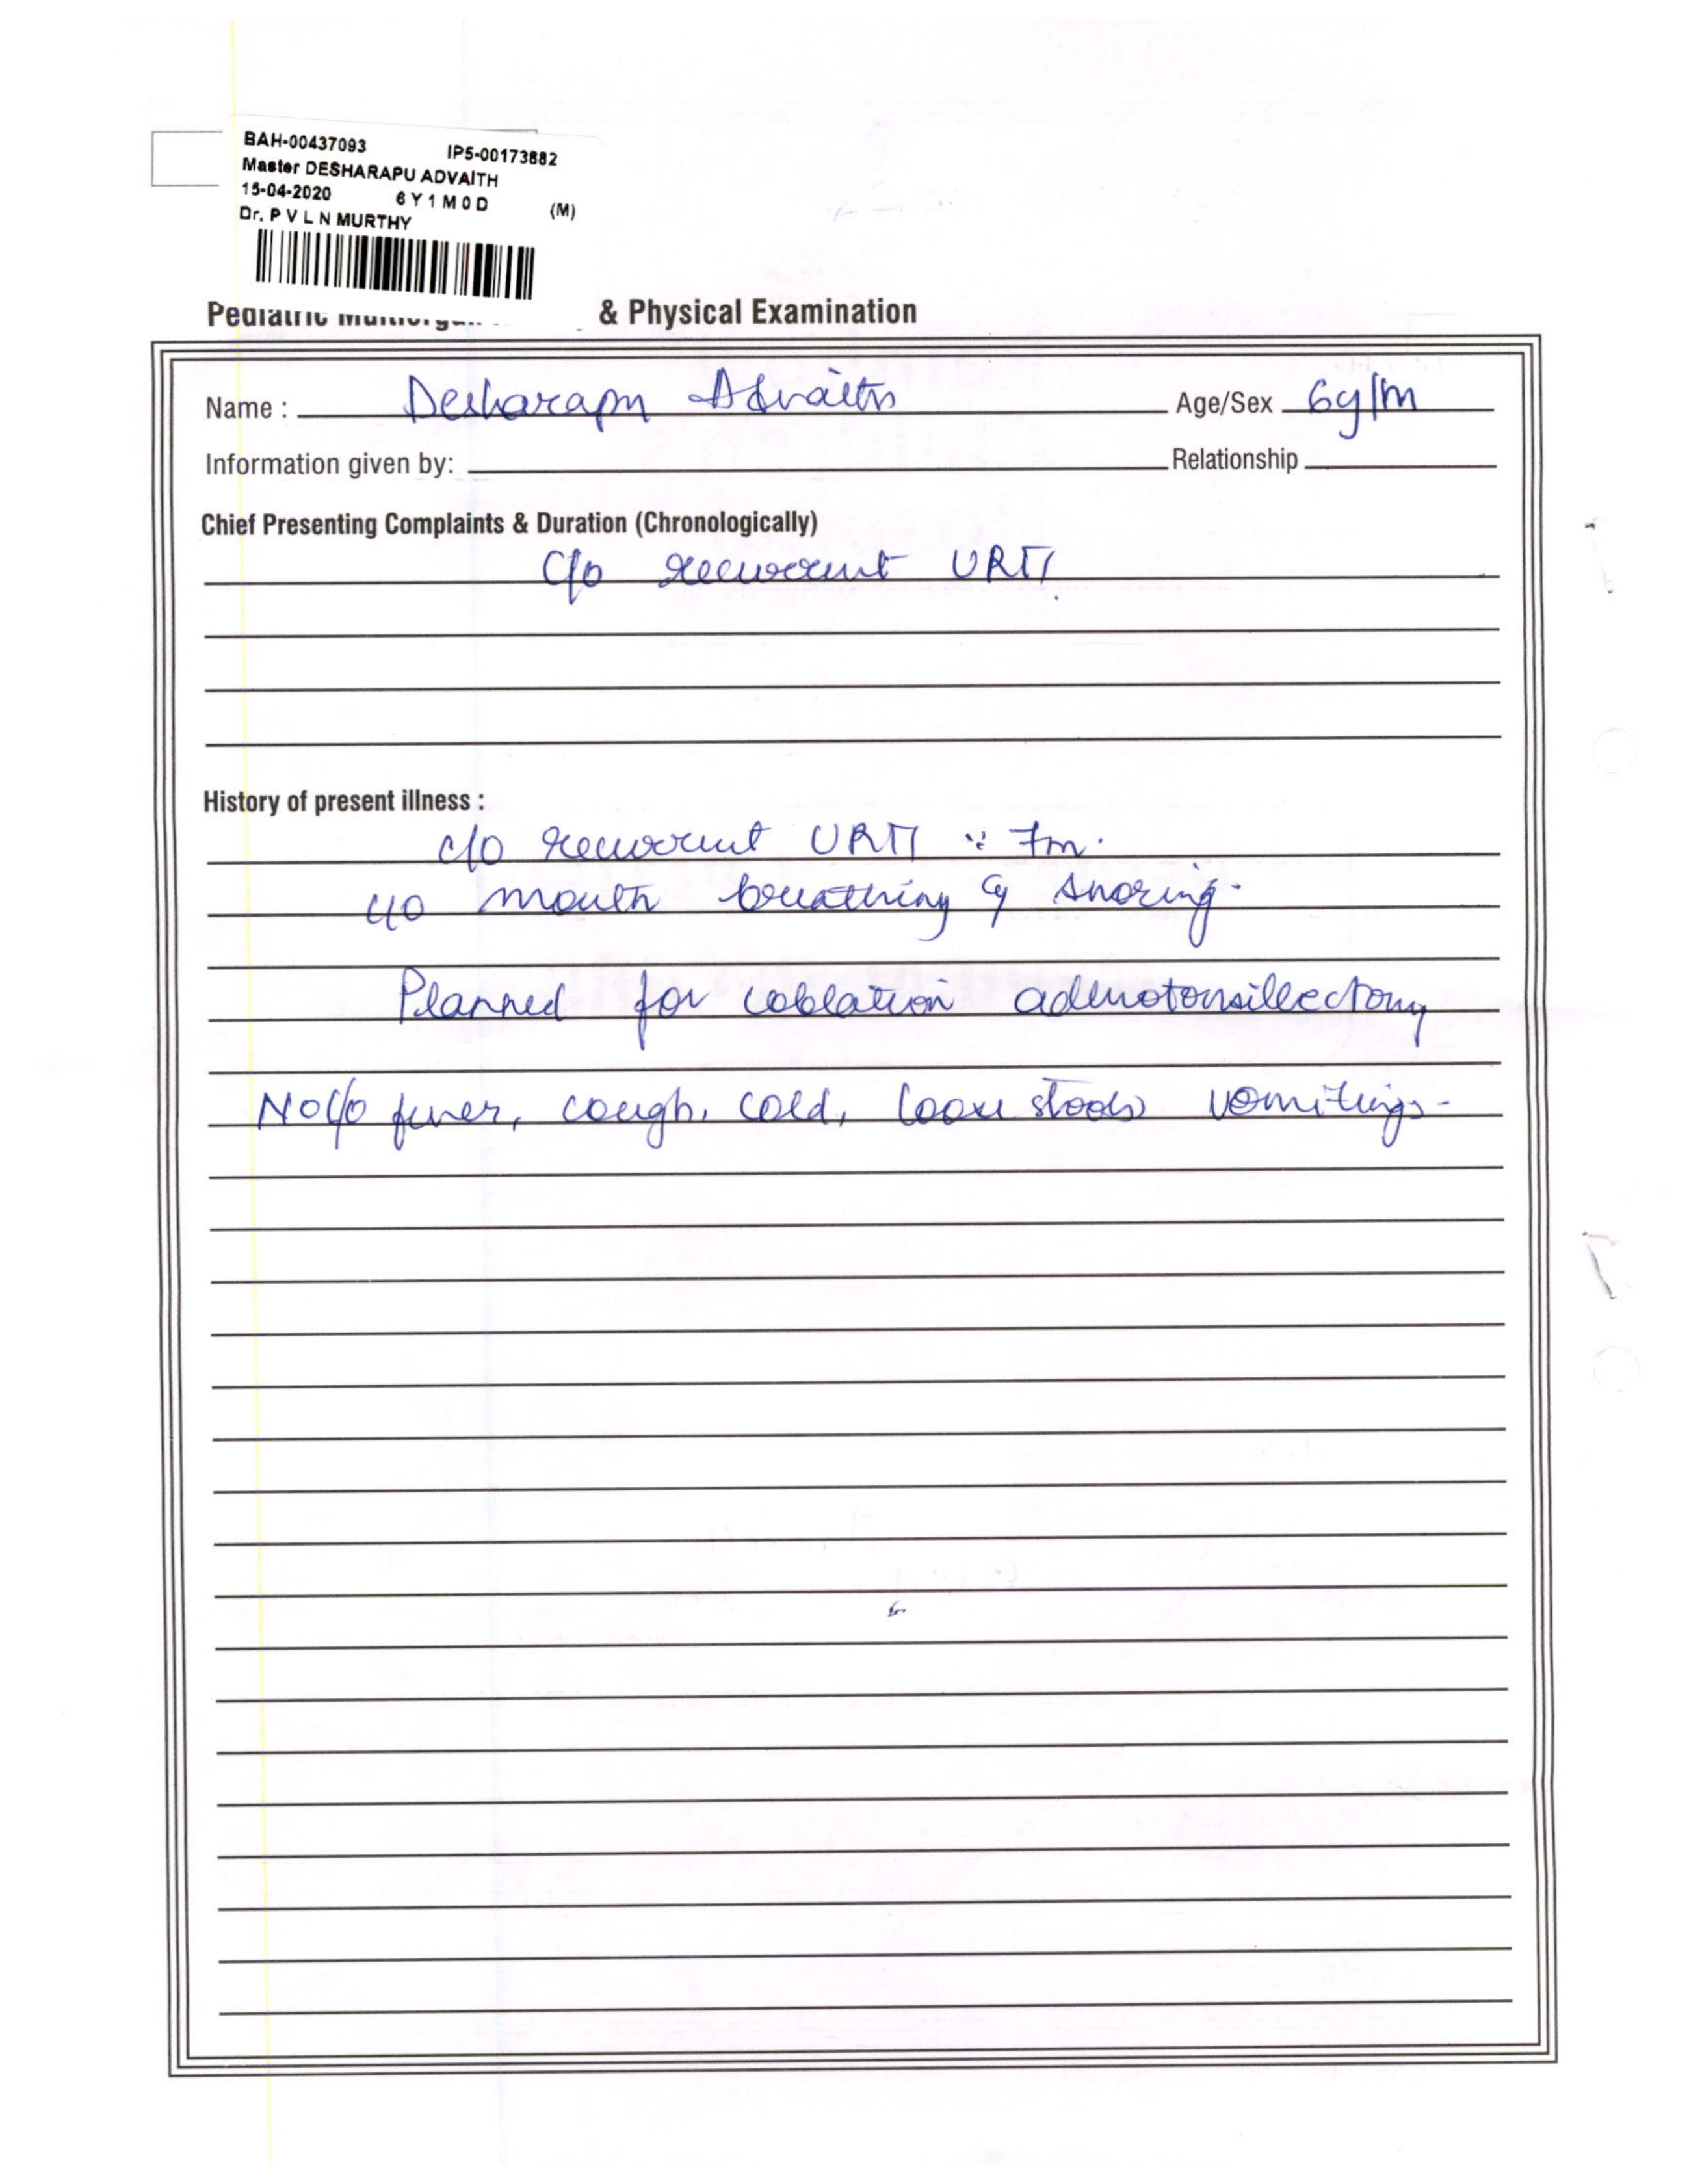 BAH-00437093 IP5-00173882
Master DESHARAPU ADVAITH
15-04-2020 6Y1M0D (M)
Dr. P V L N MURTHY
Pediatric & Physical Examination
Name : Desharapu Advaith Age/Sex 6y/m
Information given by: Relationship
Chief Presenting Complaints & Duration (Chronologically)
C/o recurrent URTI.
History of present illness :
c/o recurrent URTI 7m.
c/o mouth breathing snoring.
Planned for coblation adenotonsillectomy
No c/o fever, cough, cold, loose stools vomitings.